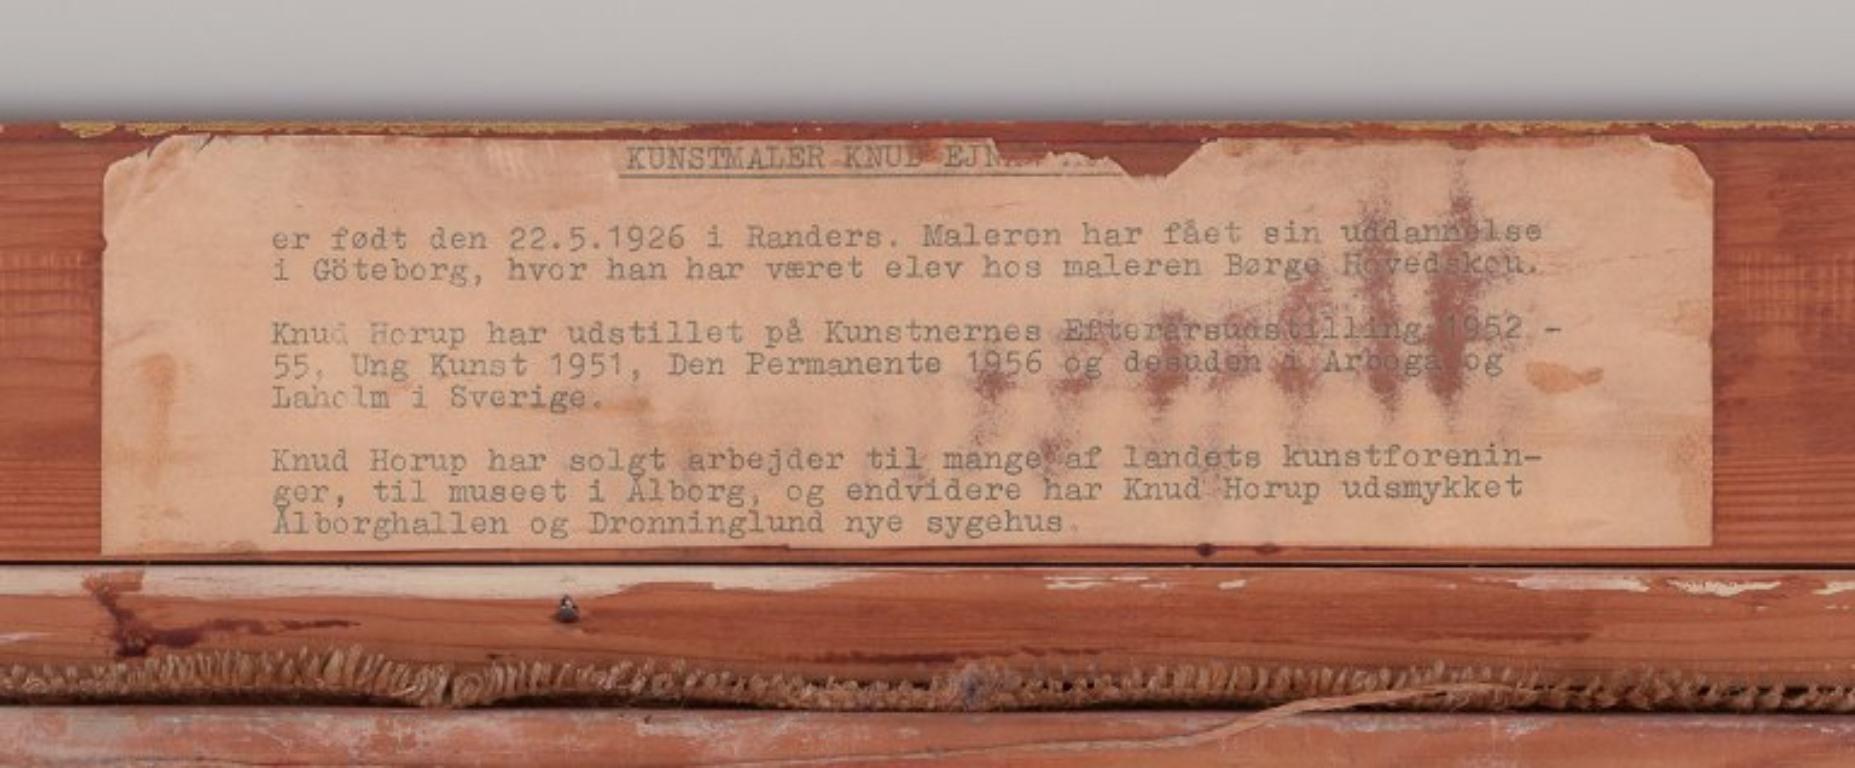 KUNSTMALER KNUD
er født den 22.5.1926 i Randers. Maleren har fået sin uddannelse
i Göteborg, hvor han har været elev hos maleren Børge Hovedskou.
Knud Horup har udstillet på Kunstnernes Efterårsudstilling 1952 -
55, Ung Kunst 1951, Den Permanente 1956 og desuden i Arboga og
Laholm i Sverige.
Knud Horup har solgt arbejder til mange af landets kunstforenin-
ger, til museet i Ålborg, og endvidere har Knud Horup udsmykket
Ålborghallen og Dronninglund nye sygehus.